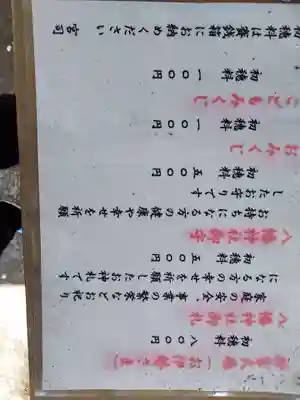 神宮大麻(お伊勢さま)
初穂料 八〇〇円
八幡神社御札
家庭の安全、事業の繁栄などお祀り
になる方の幸せを祈願したお神札です
初穂料 五〇〇円
八幡神社御守
お持ちになる方の健康や幸せを祈願
したお守りです
初穂料 五〇〇円
おみくじ
初穂料 一〇〇円
こどもみくじ
初穂料 一〇〇円
初穂料は賽銭箱にお納めください 宮司